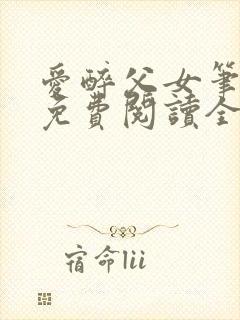 愛醉父女筆
免費閱讀全
宿命lii